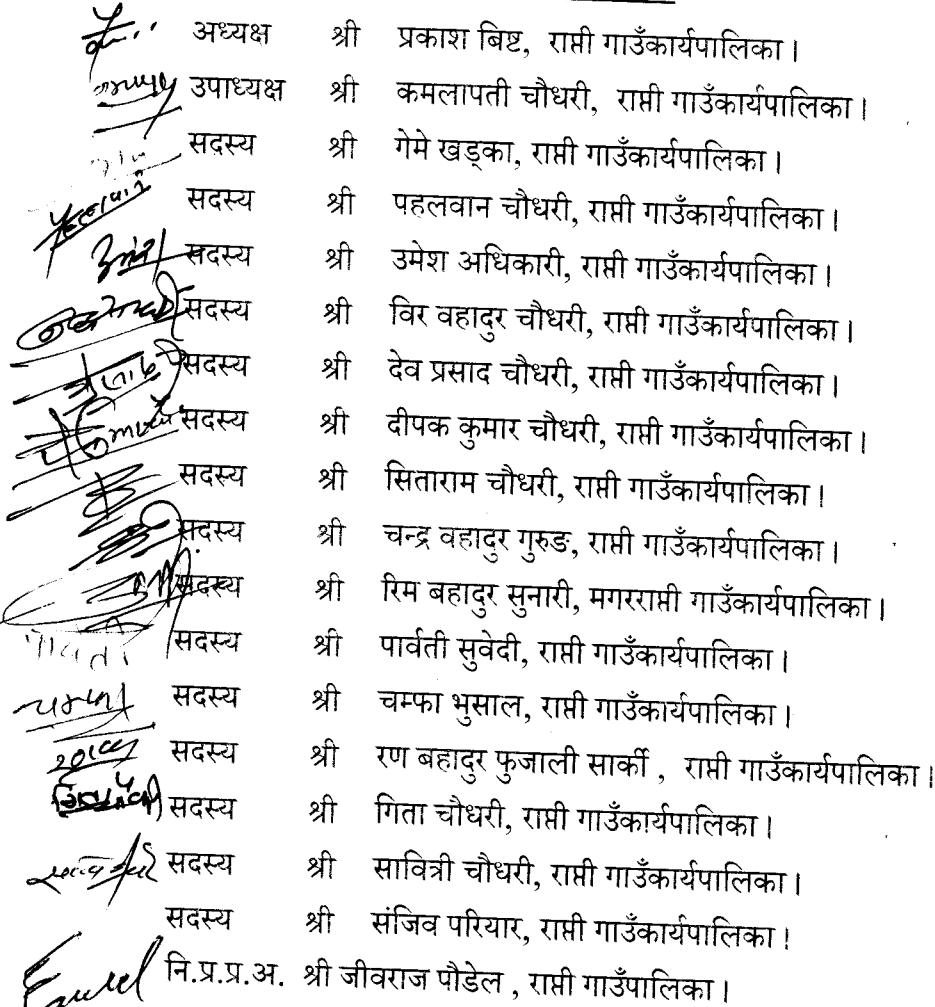 अध्यक्ष श्री प्रकाश बिष्ट, राप्ती गाउँकार्यपालिका ।
उपाध्यक्ष श्री कमलापती चौधरी, राप्ती गाउँकार्यपालिका ।
सदस्य श्री गेमे खड्का, राप्ती गाउँकार्यपालिका ।
सदस्य श्री पहलवान चौधरी, राप्ती गाउँकार्यपालिका ।
सदस्य श्री उमेश अधिकारी, राप्ती गाउँकार्यपालिका ।
सदस्य श्री विर वहादुर चौधरी, राप्ती गाउँकार्यपालिका ।
सदस्य श्री देव प्रसाद चौधरी, राप्ती गाउँकार्यपालिका ।
सदस्य श्री दीपक कुमार चौधरी, राप्ती गाउँकार्यपालिका ।
सदस्य श्री सिताराम चौधरी, राप्ती गाउँकार्यपालिका ।
सदस्य श्री चन्द्र वहादुर गुरुङ, राप्ती गाउँकार्यपालिका ।
सदस्य श्री रिम बहादुर सुनारी, मगरराप्ती गाउँकार्यपालिका ।
पार्वती सदस्य श्री पार्वती सुवेदी, राप्ती गाउँकार्यपालिका ।
चम्फा सदस्य श्री चम्फा भुसाल, राप्ती गाउँकार्यपालिका ।
सदस्य श्री रण बहादुर फुजाली सार्की , राप्ती गाउँकार्यपालिका ।
सदस्य श्री गिता चौधरी, राप्ती गाउँकार्यपालिका ।
सदस्य श्री सावित्री चौधरी, राप्ती गाउँकार्यपालिका ।
सदस्य श्री संजिव परियार, राप्ती गाउँकार्यपालिका ।
नि.प्र.प्र.अ. श्री जीवराज पौडेल , राप्ती गाउँपालिका ।